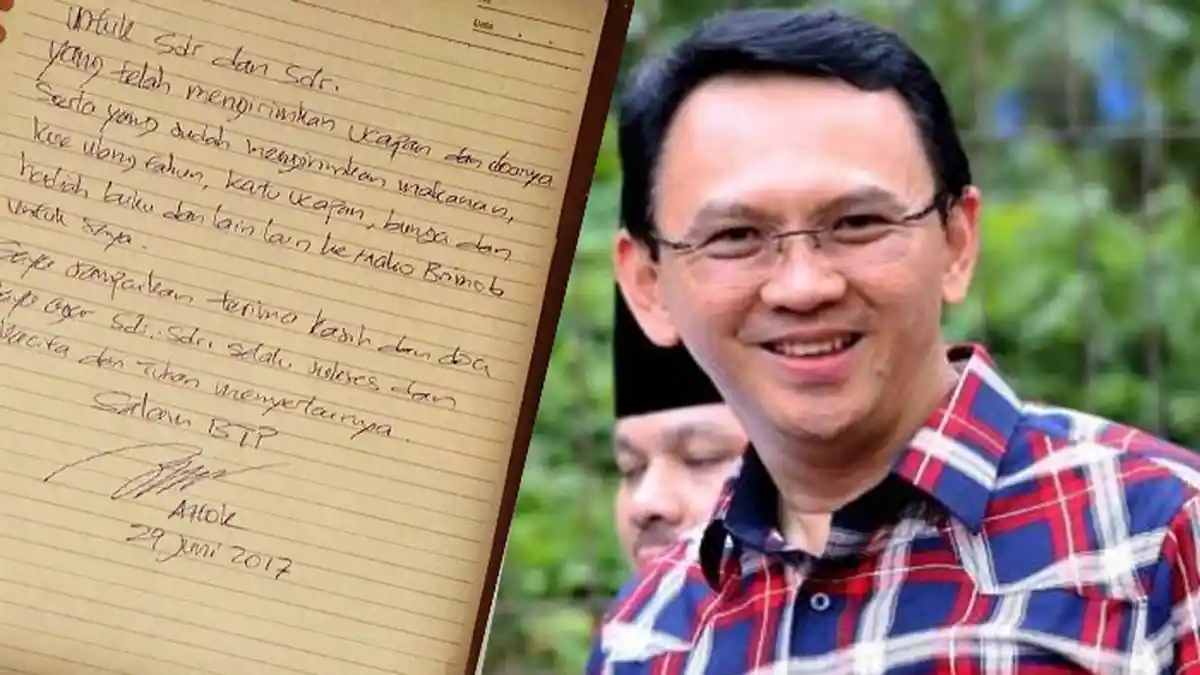 Date
untuk Sdr dan Sdr.
yang telah mengirimkan ucapan dan doanya
Serta yang sudah mengirimkan makanan,
kue ulang tahun, kartu ucapan, bunga dan
hadiah buku dan lain lain ke Mako Brimob
untuk saya.
Saya sampaikan terima kasih dan doa
saya agar Sdr. Sdri selalu sukses dan
dan Tuhan menyertainya.
Salam BTP
Ahok
29 Juni 2017